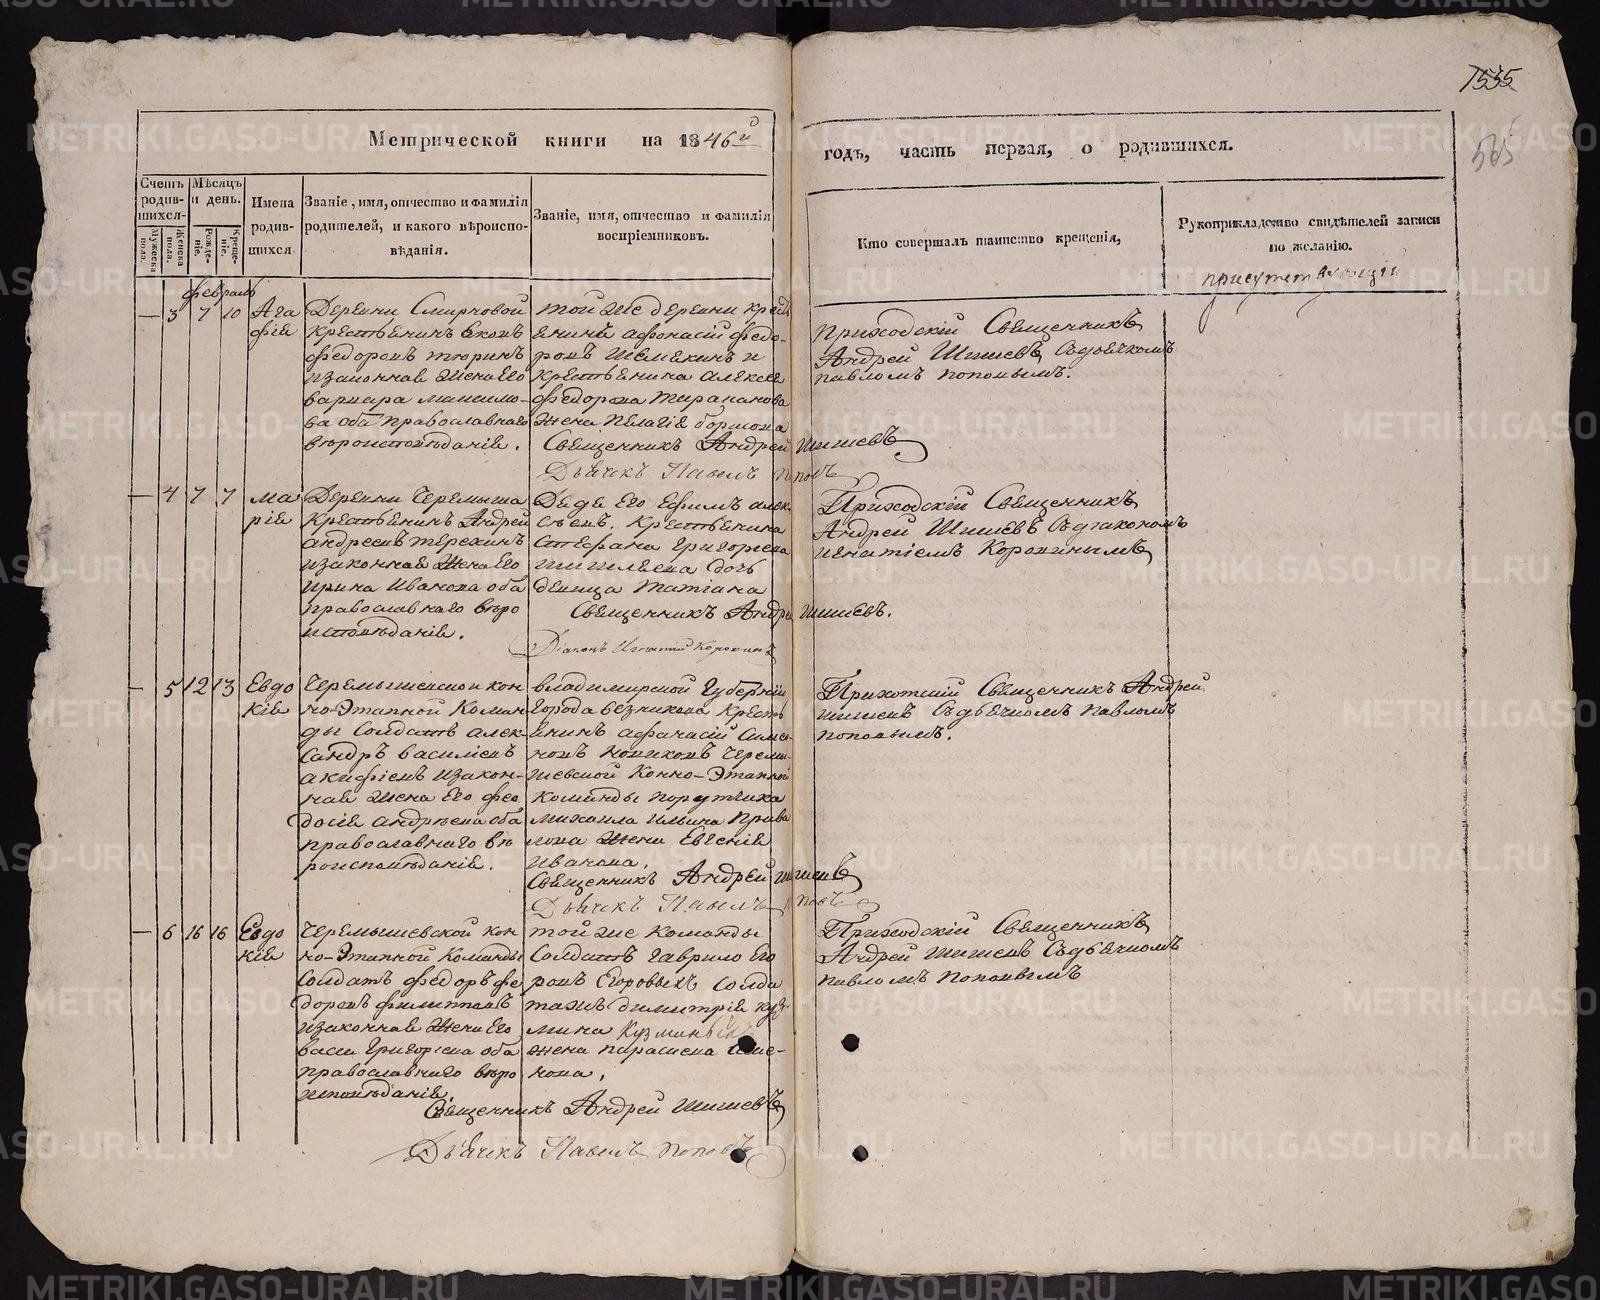 1535
565
Метрической книги на 1846й
годъ, часть первая, о родившихся.
Счетъ родив-шихся.
Мужеска пола.
Женска пола.
Мѣсяцъ и день.
Рожде-ніе.
Креще-ніе.
Имена родив-шихся
Званіе, имя, отчество и фамилія родителей, и какого вѣроиспо-вѣданія.
Званіе, имя, отчество и фамилія воспріемниковъ.
Кто совершалъ таинство крещенія,
Рукоприкладство свидѣтелей записи по желанію.
присутствующій
февраль
— 3 7 10
Ага
фіѣ
Деревни Смирновой
Крестьянинъ
федоровъ тюринъ
изаконнаѣ жена Его
варвара Максимо-
ва оба православнаго
вѣроисповѣданіѣ.
той же деревни крест
янинъ афонасій федо-
ровъ и
крестьянина алексеѣ
федорова
жена пелагіѣ
Священникъ Андрей Шишевъ
Дьячекъ Павелъ Поповъ
Приходскій Священникъ
Андрей Шишевъ Съдьячкомъ
павломъ поповымъ.
— 4 7 7
ма
ріѣ
Деревни Черемыша
Крестьянинъ Андрей
андреевъ терехинъ
изаконнаѣ жена Его
ирина Иванова оба
православнаго вѣро
исповѣданіѣ.
Деде Его Ефимъ алек
сѣевъ. крестьянина
Стефана Григорьева
дочь
девица Татіана
Священникъ Андрей Шишевъ.
Діаконъ Игнатій Коровинъ
Приходскій Священникъ
Андрей Шишевъ Съдіакономъ
игнатіемъ Коровинымъ
— 5 12 13
Евдо
кіѣ
Черемышевской кон
но-Этапной Коман
ды Солдатъ алек-
сандръ василіевъ
изакон-
наѣ жена Его фео
досіѣ андрѣева оба
православнаго вѣ
роисповѣданіѣ.
владимирской Губерніи
города вѣзникова Кресть
янинъ афанасій Симе
новъ новиковъ череми
шевской Конно-Этапной
команды порутчика
михаила ильина прива
лова жена Евгеніѣ
иванова.
Священникъ Андрей Шишевъ
Дьячекъ Павелъ Поповъ
Прихотскій Священникъ Андрей
шишевъ Съдьячкомъ павломъ
поповымъ.
— 6 16 16
Евдо
кіѣ
Черемышевской кон
но-Этапной Команды
Солдатъ федоръ фе
доровъ филиповъ
изаконнаѣ жена Его
васса Григорьева оба
православнаго вѣро
исповѣданіѣ.
той же команды
Солдатъ гаврило Его
ровъ Егоровыхъ солда
димитріѣ куз-
мина
жена параскева Симе-
нова.
Священникъ Андрей Шишевъ
Дьячекъ Павелъ Поповъ
Приходскій Священникъ
Андрей шишевъ Съдьячкомъ
павломъ поповымъ
METRIKI.GASO-URAL.RU